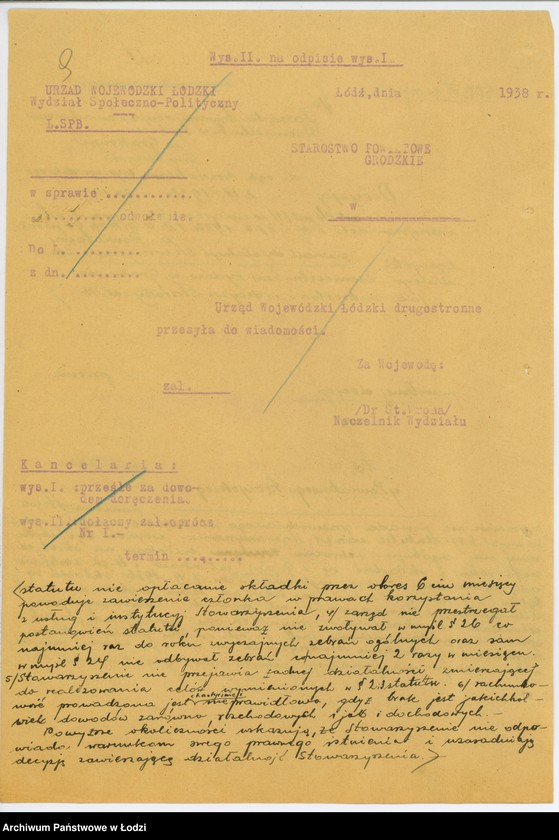 Wys.II. na odpisie wys.I.
URZĄD WOJEWÓDZKI ŁÓDZKI
Wydział Społeczno-Polityczny
Łódź,dnia 1938 r.
L.SPB.
STAROSTWO POWIATOWE
GRODZKIE
w sprawie ............
odwołanie.
w
Do L. ..........
z dn. .........
Urząd Wojewódzki Łódzki drugostronne
przesyła do wiadomości.
Za Wojewodę:
zał.
/Dr St.Wrona/
Naczelnik Wydziału
Kancelaria:
wys.I. :prześle za dowo-
dem doręczenia.
wys.II.:dołączy zał.oprócz
Nr 1.-
termin ........
(statutu nie opłacanie składki przez okres 6 ciu miesięcy
powoduje zawieszenie członka w prawach korzystania
z usług i instytucji Stowarzyszenia, 4/ zarząd nie przestrzegał
postanowień statutu, ponieważ nie zwoływał w myśl § 26 co
najmniej raz do roku zwyczajnych zebrań ogólnych oraz sam
w myśl § 24 nie odbywał zebrań conajmniej 2 razy w miesiącu.
5/ Stowarzyszenie nie przejawia żadnej działalności zmierzającej
do realizowania celów wymienionych w § 2 statutu. 6/ rachunko-
wość prowadzona jest nieprawidłowo, gdyż brak jest jakichkol-
wiek dowodów zarówno rozchodowych jak i dochodowych. -
Powyższe okoliczności wskazują, że Stowarzyszenie nie odpo-
wiada warunkom swego prawnego istnienia i uzasadniają
decyzję zawieszającą działalność Stowarzyszenia.)
Archiwum Państwowe w Łodzi